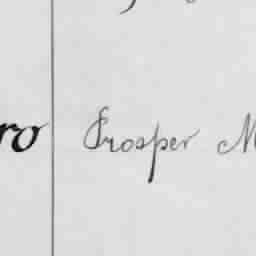 ro Prosper M